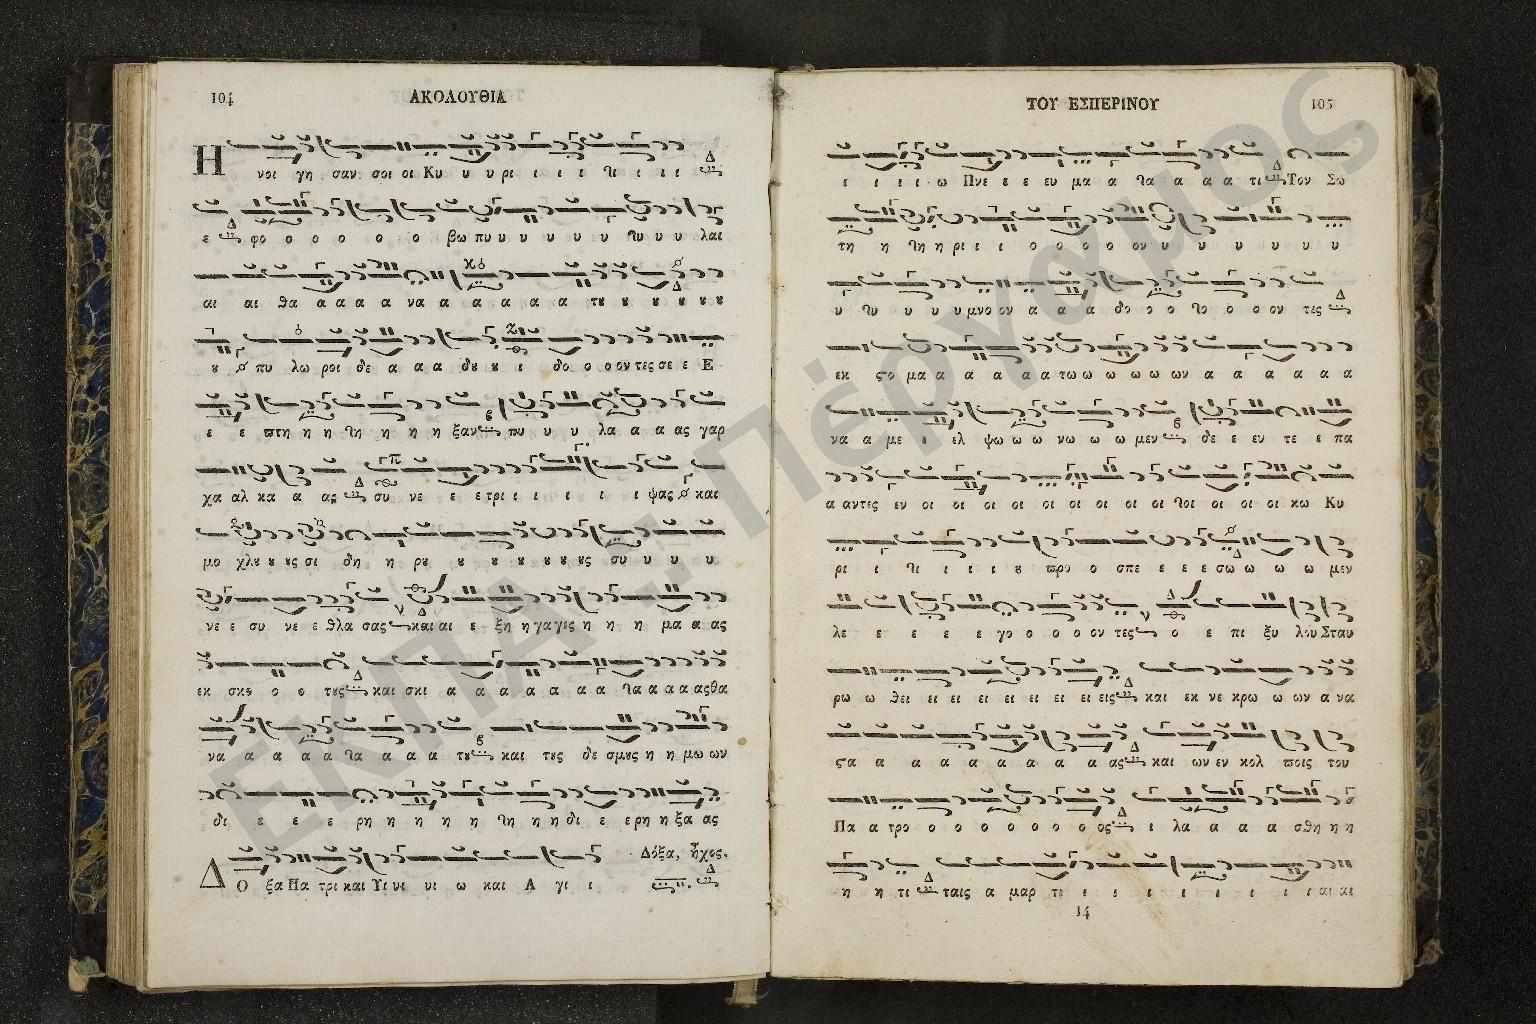 104
ΑΚΟΛΟΥΘΙΑ
Η νοι γη σαν σοι οι Κυ υ υ ρι ι ι ι λι ι ι ι
ε φο ο ο ο ο ο βω πυ υ υ υ υ υ λυ υ υ λαι
αι αι θα α α α α να α α α α α α τȣ ȣ ȣ ȣ ȣ ȣ
ȣ πυ λω ροι δε α α α δȣ ȣ ι δο ο ο ον τες σε ε Ε
ε ε πτη η η λη η η η ξαν πυ υ υ λα α α ας γαρ
χα αλ κα α ας συ νε ε ε τρι ι ι ι ι ι ψας και
μο χλȣ ȣ ȣς σι δη η ρȣ ȣ ȣ ȣ ȣ ȣ ȣς συ υ υ υ
νε ε συ νε ε θλα σας και αι ε ξη η γα γες η η η μα α ας
εκ σκο ο ο τȣς και σκι α α α α α α α λα α α α ας θα
να α α α α λα α α α τȣ και τȣς δε σμȣς η η μω ων
δι ε ε ε ρη η η η η λη η η δι ε ερη η ξα ας
Δόξα, ἦχος.
Δ Ο ξα Πα τρι και Υι υι υι ω και Α γι ι
ΤΟΥ ΕΣΠΕΡΙΝΟΥ
105
ι ι ι ι ω Πνε ε ε ευ μα α λα α α α τι Τον Σω
τη η λη η ρι ι ι ο ο ο ο ον υ υ υ υ υ υ υ
υ λυ υ υ υ υ μνο ον α α α δο ο ο λο ο ο ον τες
εκ στο μα α α α α α τω ω ω ω ω ων α α α α α α
να α με ε ελ ψω ω ω νω ω ω μεν δε ε εν τε ε πα
α αντες εν οι οι οι οι οι οι οι οι οι λοι οι οι οι οι κω Κυ
ρι ι λι ι ι ι ȣ προ ο σπε ε ε ε σω ω ω ω μεν
λε ε ε ε ε ε γο ο ο ο ον τες ο ε πι ξυ λου Σταυ
ρω ω θει ει ει ει ει ει ει ει ει εις και εκ νε κρω ω ων α να
στα α α α α α α α α ας και ων εν κολ ποις του
Πα α τρο ο ο ο ο ο ο ο ος ι λα α α α σθη η η
η η τι ταις α μαρ τι ι ι ι ι ι ι ι ι ι αι αι
14
ΕΚΠΑ - Πέργαμος